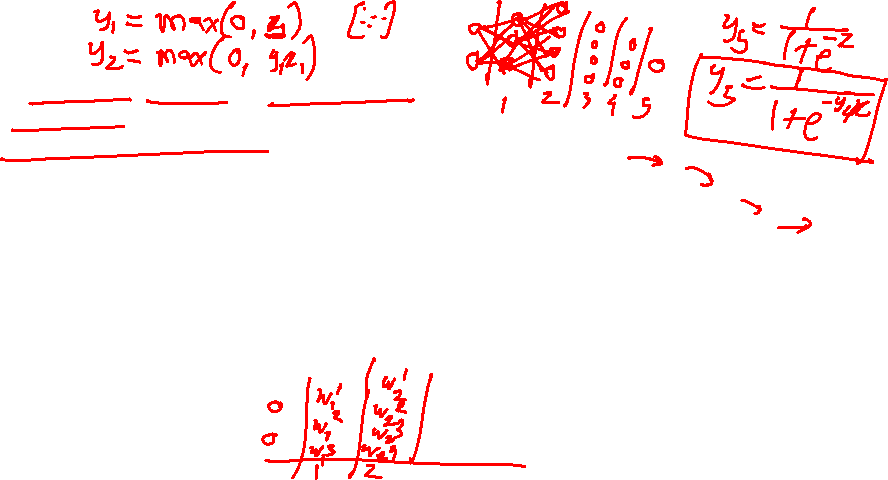 y₁ = max(0, z₁) [:·:·]
y₂ = max(0, y₁z₁)
1 2 3 4 5
y₅ = 1/(1+e^-z)
y₅ = 1/(1+e^-y₄z)
w₁¹ w₂¹
w₁² w₂²
w₁³ w₂³
w₂⁴
1 2